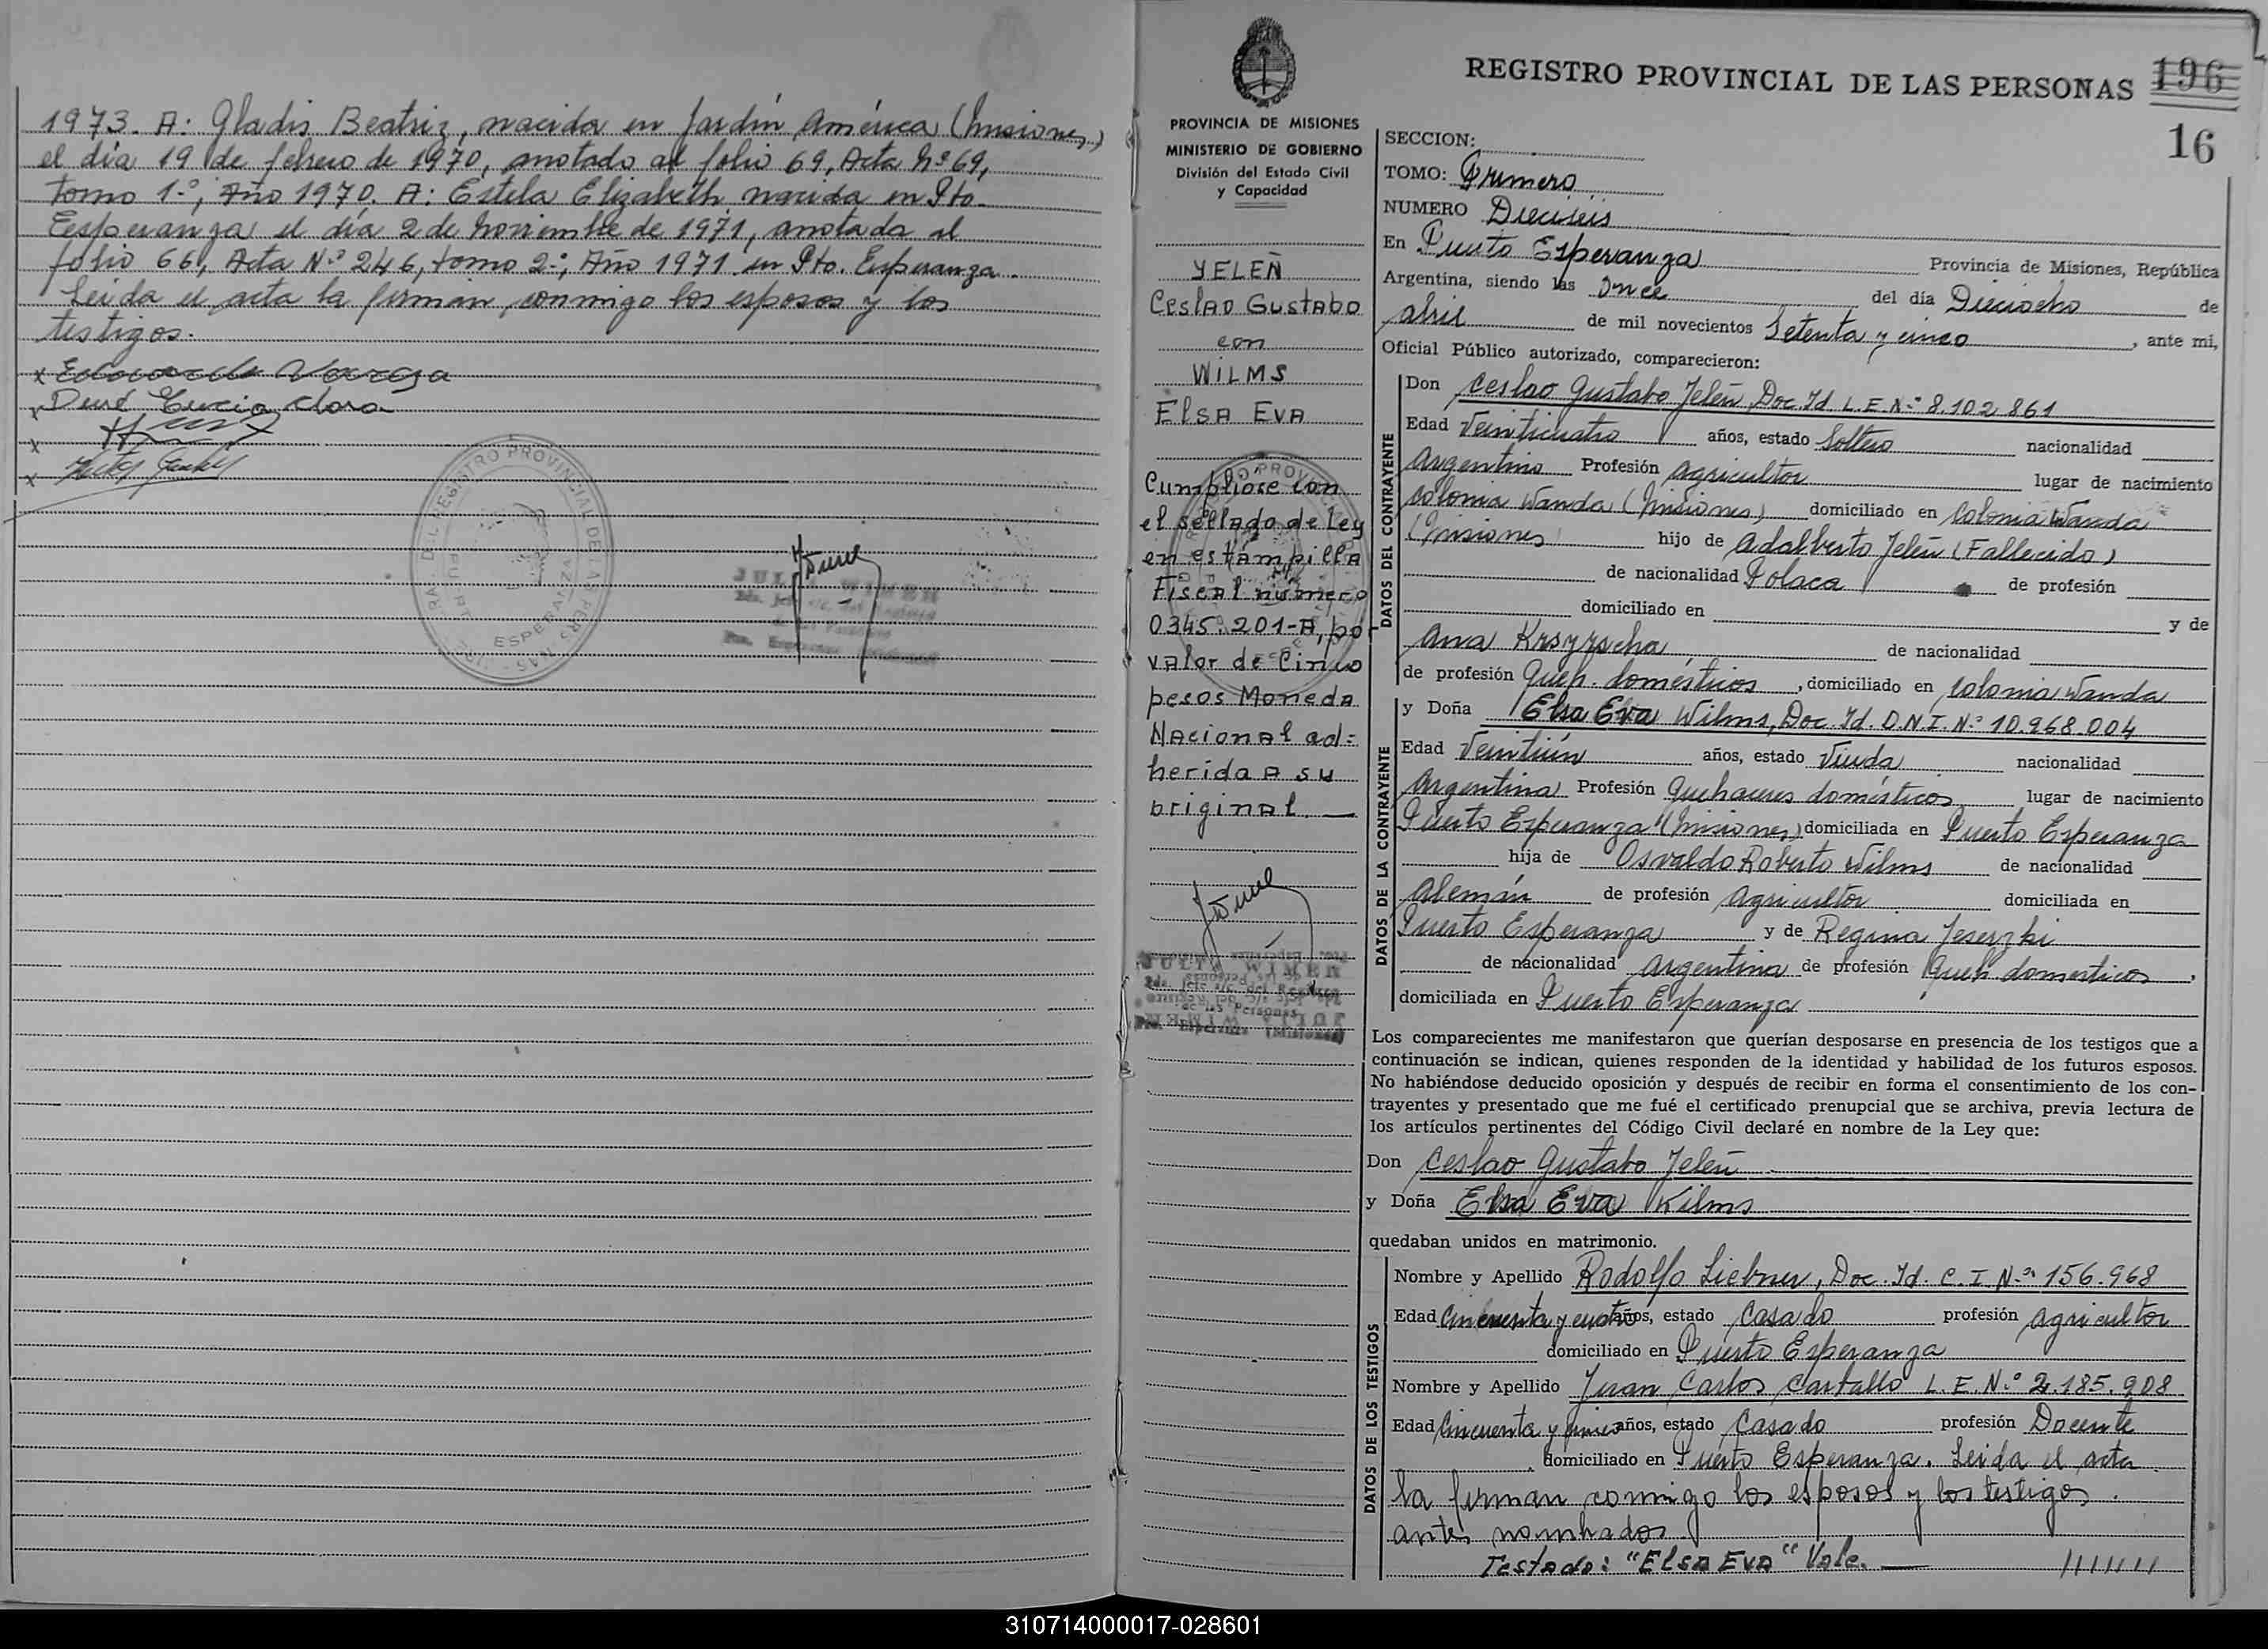 1973. A: Gladis Beatriz, nacida en Jardín América (Misiones)
el día 19 de febrero de 1970, anotado al folio 69, Acta Nº 69,
Tomo 1.º, Año 1970. A: Estela Elizabeth nacida en Pto.
Esperanza el día 2 de Noviembre de 1971, anotada al
folio 66, Acta N.º 246, tomo 2.º, Año 1971 en Pto. Esperanza.
Leida el acta la firman conmigo los esposos y los
testigos.
REGISTRO PROVINCIAL DE LAS PERSONAS
196
16
PROVINCIA DE MISIONES
MINISTERIO DE GOBIERNO
División del Estado Civil
y Capacidad
YELEÑ
CeslAO GUSTABO
con
WILMS
ElSA EVA
Cumpliose con
el sellado de Ley
en estampilla
Fiscal número
0345.201-A, por
valor de Cinco
pesos Moneda
Nacional ad=
herida A su
original. —
JULIO WIMER
SECCION:
TOMO: Primero
NUMERO Dieciseis
En Puerto Esperanza Provincia de Misiones, República
Argentina, siendo las Once del día Dieciocho de
abril de mil novecientos Setenta y cinco, ante mi,
Oficial Público autorizado, comparecieron:
DATOS DEL CONTRAYENTE
Don Ceslao Gustabo Yeleñ, Doc. Id. L.E.N.º 8.102.861
Edad Veinticuatro años, estado Soltero nacionalidad
Argentino Profesión Agricultor lugar de nacimiento
Colonia Wanda (Misiones) domiciliado en Colonia Wanda
(Misiones hijo de Adalberto Yeleñ (Fallecido)
de nacionalidad Polaca de profesión
domiciliado en y de
Ana de nacionalidad
de profesión Queh. domésticos, domiciliado en Colonia Wanda
DATOS DE LA CONTRAYENTE
y Doña Elsa Eva Wilms, Doc. Id. D.N.I. N.º 10.968.004
Edad Veintiún años, estado Viuda nacionalidad
Argentina Profesión Quehaceres domésticos lugar de nacimiento
Puerto Esperanza (Misiones) domiciliada en Puerto Esperanza
hija de Osvaldo Roberto Wilms de nacionalidad
Alemán de profesión Agricultor domiciliada en
Puerto Esperanza y de Regina
de nacionalidad Argentina de profesión Queh domesticos,
domiciliada en Puerto Esperanza
Los comparecientes me manifestaron que querían desposarse en presencia de los testigos que a
continuación se indican, quienes responden de la identidad y habilidad de los futuros esposos.
No habiéndose deducido oposición y después de recibir en forma el consentimiento de los con-
trayentes y presentado que me fué el certificado prenupcial que se archiva, previa lectura de
los artículos pertinentes del Código Civil declaré en nombre de la Ley que:
Don Ceslao Gustabo Yeleñ
y Doña Elsa Eva Wilms
quedaban unidos en matrimonio.
DATOS DE LOS TESTIGOS
Nombre y Apellido Rodolfo Liebner, Doc. Id. C.I. N.º 156.968
Edad Cincuenta y cuatro años, estado Casado profesión Agricultor
domiciliado en Puerto Esperanza
Nombre y Apellido Juan Carlos L.E.N.º 2.185.908
Edad Cincuenta y cinco años, estado Casado profesión Docente
domiciliado en Puerto Esperanza. Leida el acta
la firman conmigo los esposos y los testigos
antes nombrados
Testado: "ElSA EVA" Vale. —
310714000017-028601